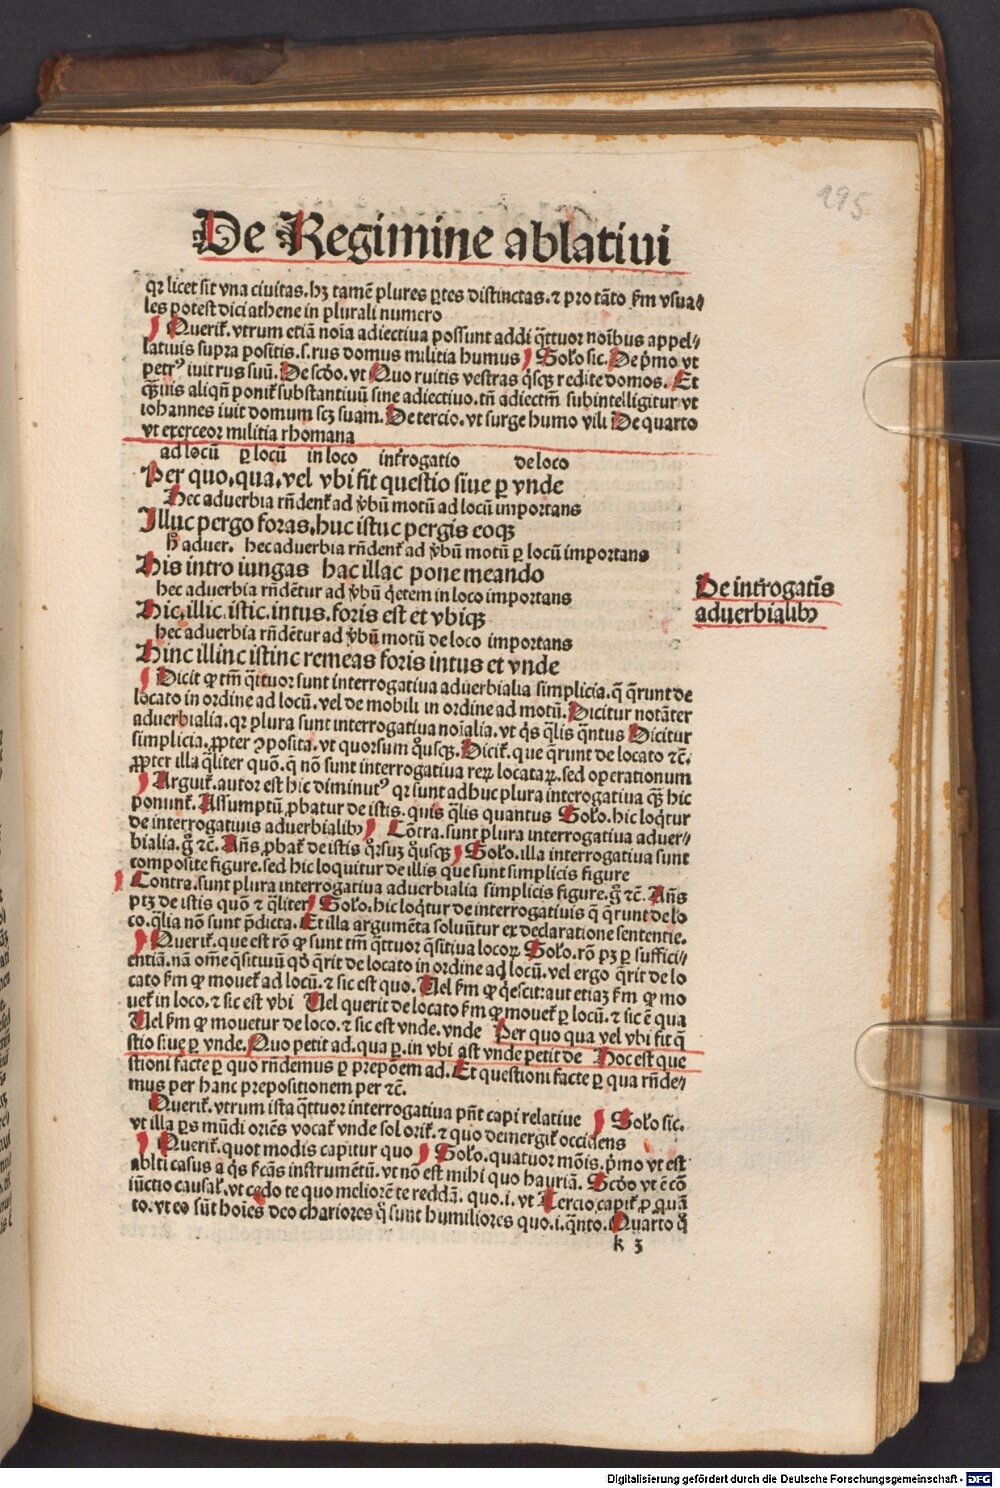 195
De Regimine ablatiui
qꝛ licet sit vna ciuitas. hꝫ tamē plures ꝑtes distinctas. ⁊ pro tāto ẜm vsua⸗
les potest dici athene in plurali numero
Querit̃. vtrum etiā noīa adiectiua possunt addi q̄ttuor noībus appel⸗
latiuis supra positis. s. rus domus militia humus Solo sic. De p̄mo vt
petrꝰ iuit rus suū. De scd̄o. vt Quo ruitis vestras q̄sqꝫ redite domos. Et
q̄uis aliqn̄ ponit̃ substantiuū sine adiectiuo. tn̄ adiectm̄ subintelligitur vt
iohannes iuit domum scꝫ suam. De tercio. vt surge humo vili De quarto
vt exerceor militia rhomana
ad locū ꝑ locū in loco intr̄ogatio de loco
Per quo, qua, vel vbi fit questio siue ꝑ vnde
Hec aduerbia rn̄dent̃ ad v̄bū motū ad locū importans
Illuc pergo foras, huc istuc pergis eoqꝫ
h̄ aduer. hec aduerbia rn̄dent̃ ad v̄bū motū ꝑ locū importans
His intro iungas hac illac pone meando
hec aduerbia rn̄dētur ad v̄bū q̄etem in loco importans
Hic, illic, istic, intus, foris est et vbiqꝫ
hec aduerbia rn̄dētur ad v̄bū motū de loco importans
Hinc illinc istinc remeas foris intus et vnde
De intr̄ogatīs
aduerbialibꝫ
Dicit ꝙ tm̄ q̄ttuor sunt interrogatiua aduerbialia simplicia. q̄ q̄runt de
locato in ordine ad locū. vel de mobili in ordine ad motū. Dicitur notāter
aduerbialia. qꝛ plura sunt interrogatiua noīalia. vt q̄s q̄lis q̄ntus Dicitur
simplicia. ꝓpter ꝯposita. vt quorsum q̄usqꝫ. Dicit̃. que q̄runt de locato ⁊c̄.
ꝓpter illa q̄liter quō. q̄ nō sunt interrogatiua reꝝ locataꝝ. sed operationum
Arguit̃. autor est hic diminutꝰ qꝛ sunt adhuc plura interogatiua q̄ꝫ hic
ponunt̃. Assumptū ꝓbatur de istis. quis q̄lis quantus Solo. hic loq̄tur
de interrogatiuis aduerbialibꝫ Cōtra. sunt plura interrogatiua aduer⸗
bialia. g̊ ⁊c̄. Añs ꝓbat̃ de istis q̄rsuꝫ q̄usqꝫ Solo. illa interrogatiua sunt
composite figure. sed hic loquitur de illis que sunt simplicis figure
Contra. sunt plura interrogatiua aduerbialia simplicis figure. g̊ ⁊c̄. Añs
ptꝫ de istis quō ⁊ q̄liter Solo. hic loq̄tur de interrogatiuis q̄ q̄runt de lo
co. q̄lia nō sunt p̄dicta. Et illa argumēta soluūtur ex declaratione sententie.
Querit̃. que est rō ꝙ sunt tm̄ q̄ttuor q̄sitiua locoꝝ Solo. rō pꝫ ꝑ suffici⸗
entiā. nā om̄e q̄sitiuū qd̄ q̄rit de locato in ordine ad locū. vel ergo q̄rit de lo
cato ẜm ꝙ mouet̃ ad locū. ⁊ sic est quo. Uel ẜm ꝙ q̄escit: aut etiaꝫ ẜm ꝙ mo
uet̃ in loco. ⁊ sic est vbi Uel querit de locato ẜm ꝙ mouet̃ ꝑ locū. ⁊ sic ē qua
Uel ẜm ꝙ mouetur de loco. ⁊ sic est vnde. vnde Per quo qua vel vbi fit q̄
stio siue ꝑ vnde. Quo petit ad. qua ꝑ. in vbi ast vnde petit de Hoc est que
stioni facte ꝑ quo rn̄demus ꝑ prepōem ad. Et questioni facte ꝑ qua rn̄de⸗
mus per hanc prepositionem per ⁊c̄.
Querit̃. vtrum ista q̄ttuor interrogatiua pn̄t capi relatiue Solo sic.
vt illa ꝑs mūdi oriēs vocat̃ vnde sol orit̃. ⁊ quo demergit̃ occidens
Querit̃. quot modis capitur quo Solo. quatuor mōis. p̄mo vt est
ablti casus a q̄s ẜcās instrumētū. vt nō est mihi quo hauriā. Scd̄o vt ē cō
iūctio causat̃. vt cedo te quo meliorē te reddā. quo. i. vt Tercio capit̃ ꝓ ꝓquā
to. vt eo sūt hoīes deo chariores q̄ sunt humiliores quo. i. q̄nto. Quarto q̄
k 3
Digitalisierung gefördert durch die Deutsche Forschungsgemeinschaft - DFG